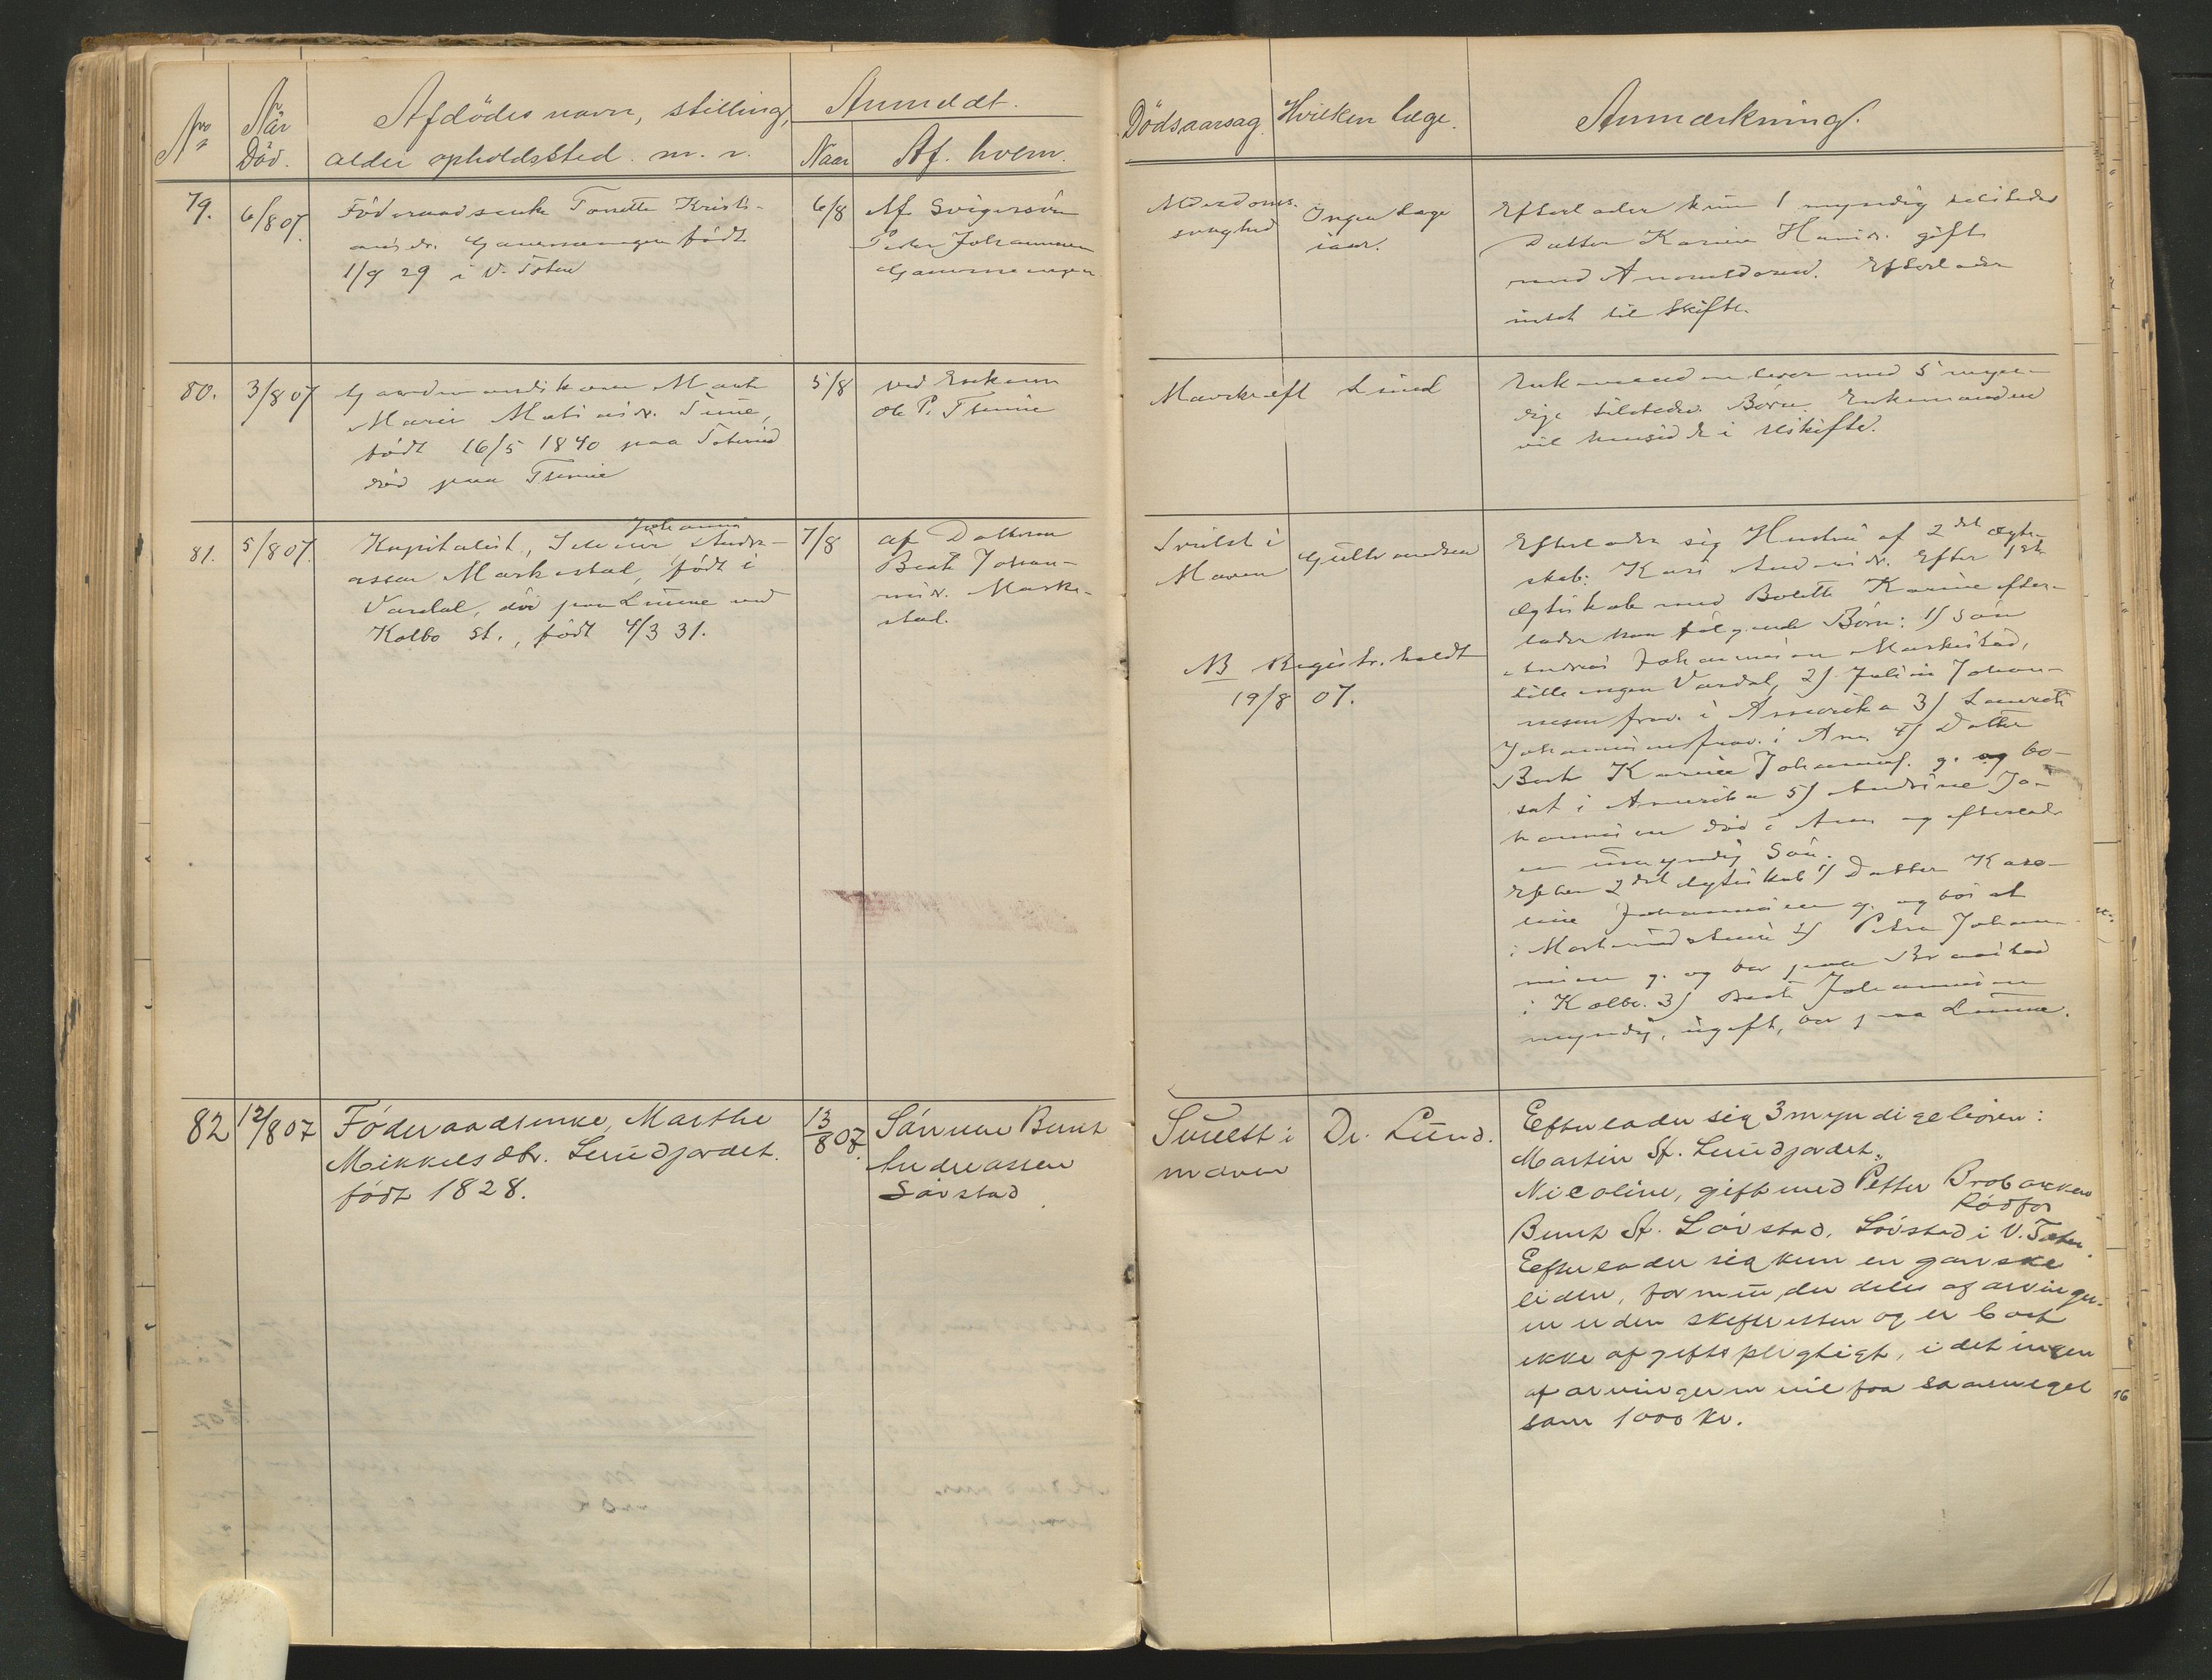 No
Når Död.
Afdödes navn, stilling,
alder opholdssted. m. v.
Anmeldt.
Naar
Af. hvem.
Dödsaarsag.
Hvilken læge.
Anmærkning.
79.
6/8 07.
Föderaadsenke Tonette Kristi-
født
1/9 29 i V. Toten
6/8
Af Svigersön
Peder Johannesen
Alderdoms-
svaghed
Ingen læge
Efterlader kun 1 myndig
Datter Karine gift
med Anmelderen. Efterlader
intet til Skifte.
80.
3/8 07
Gaardmandskone
Marie
født 16/5 1840 paa
död paa
5/8
ved Enkem
Ole P.
Mavekræft
Lund
Enkemanden lever med 5 myn-
dige tilstede. Börn. Enkemanden
vil hensidde i uskifte.
81.
5/8 07.
Kapitalist, Johannes Andre-
assen født i
Vardal, död paa Linne ved
Kolbo St., født 4/3 31.
7/8
af Datteren
Beate Johan-
nesdr. Marke-
stad.
Svulst i
Maven
Gulbrandsen
NB Registr. holdt
19/8 07.
Efterlader sig Hustru af 2det Ægte-
skab: Kari Efter 1ste
Ægteskab med Bolette Karine efter-
lader han følgende Börn: 1) Sön
Andreas Johannesen Markestad,
Vardal, 2) Julius Johan-
nesen frav. i Amerika 3)
Johannesen frav. i Am. 4) Datter
Karine Johannesd. g. og bo-
sat i Amerika 5) Andrine Jo-
hannesen död i Am. og efterlod
en umyndig Sön.
Efter 2det Ægteskab 1) Datter Karo-
line Johannesen g. og bor
i 2) Petra Johan-
nesen g. og bor paa
i Kolbu. 3) Beate Johannesen
myndig, ugift, bor paa Linne.
82
12/8 07
Föderaadsenke, Marthe
Mikkelsdtr. Lundjordet.
født 1828.
13/8 07.
Sønnen Bernt
Andreassen
Lövstad
Svulst i
maven
Dr. Lund.
Efterlader sig 3 myndige börn:
Martin St. Lundjordet,
Nicoline, gift med Petter Brobakken
Bernt St. Lövstad, Lövstad i V. Toten.
Efterlader sig kun en ganske
liden, formue, der deles af arvinger-
ne uden skifteretten og er boet
ikke afgiftspligtigt, i det ingen
af arvingerne vil faa saameget
som 1000 kr.